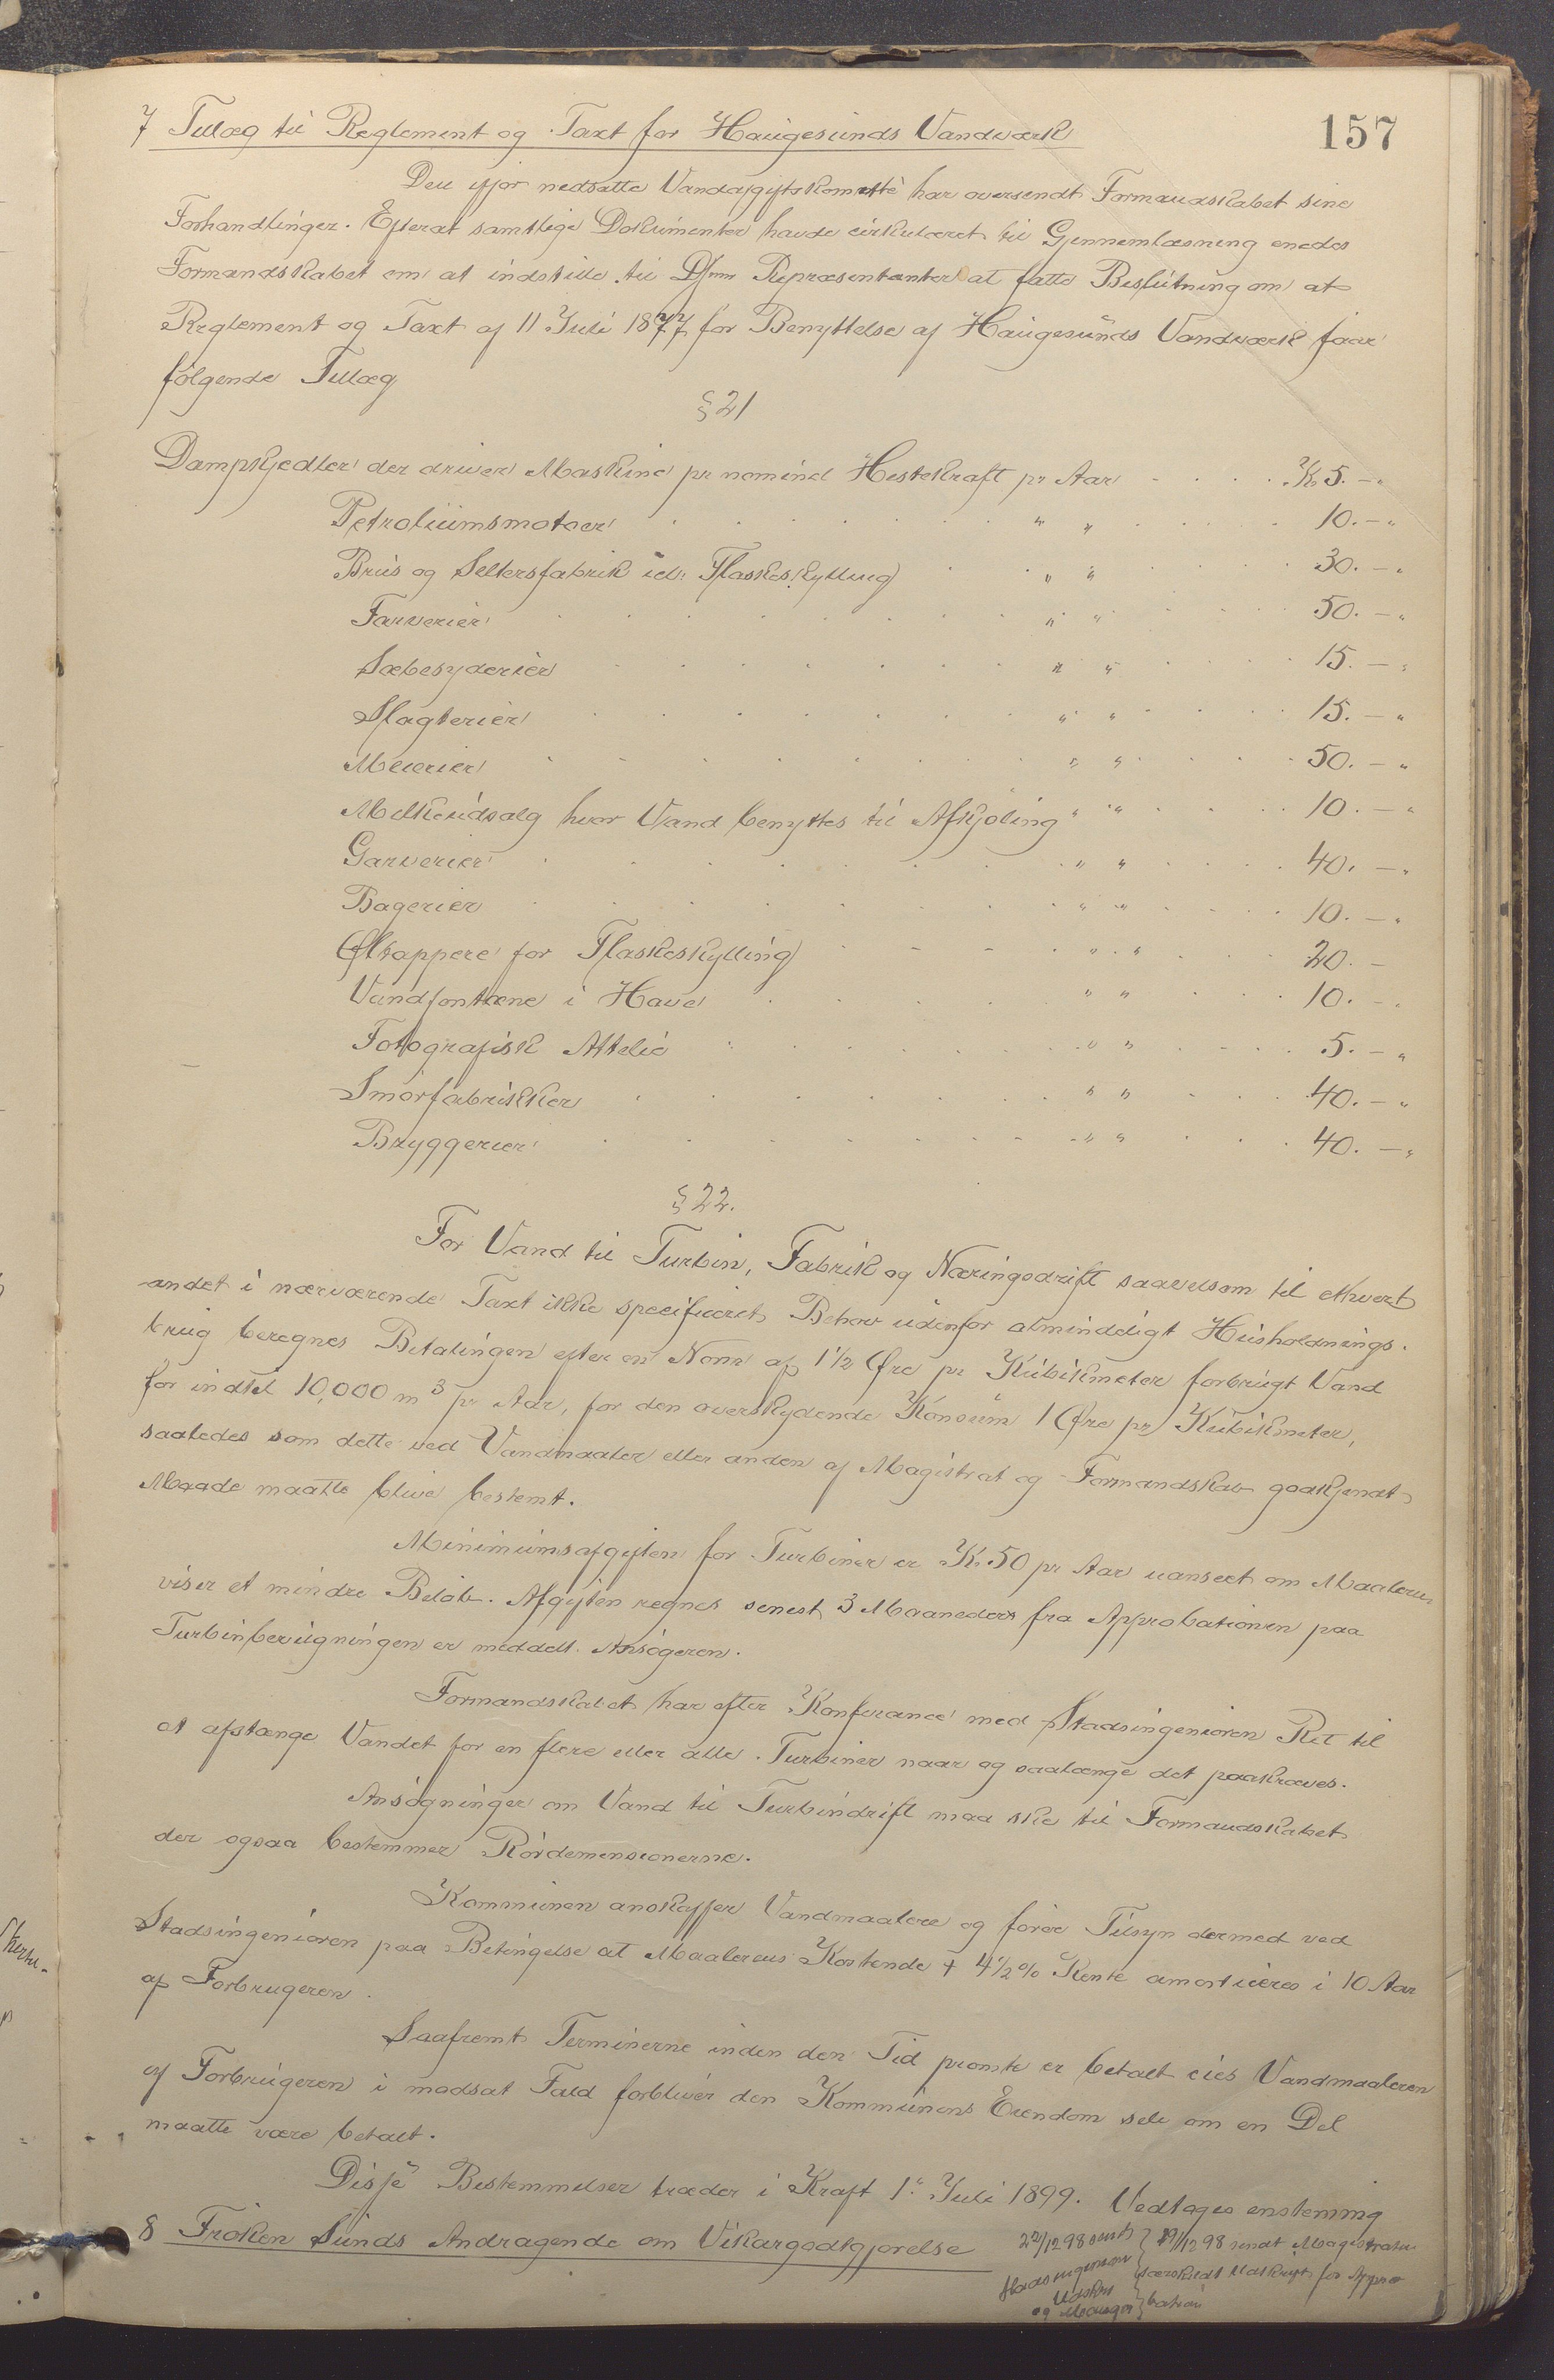 157
7 Tillæg til Reglement og Taxt for Haugesunds Vandværk
Den ifjor nedsatte Vandafgiftskomitté har oversendt Formandskabet sine
Forhandlinger. Efterat samtlige Dokumenter havde cirkuleret til Gjennemlæsning enedes
Formandskabet om at indstille til Dhrr Repræsentanter at fatte Beslutning om at
Reglement og Taxt af 11 Juli 1877 for Benyttelse af Haugesunds Vandværk faar
følgende Tillæg
§ 21
Dampkjedler der driver Maskine pr nominel Hestekraft pr Aar . . . . Kr. 5. – "
Petroliumsmotoer . . . . . . " " . . . . 10. – "
Brus og Seltersfabrik id. Flaskeskylling . . " " . . . . 30. – "
Farverier . . . . . . . . " " . . . . 50. – "
Sæbesyderier . . . . . . . " " . . . . 15. – "
Slagterier . . . . . . . " " . . . . 15. – "
Meierier . . . . . . . " " . . . . 50. – "
Melkeudsalg hvor Vand benyttes til Afkjøling " " . . . . 10. – "
Garverier . . . . . . . " " . . . . 40. – "
Bagerier . . . . . . . " " . . . . 10. – "
Øltappere for Flaskeskylling . . . . " " . . . 20. –
Vandfontæne i Have . . . . . " " . . . 10. – "
Fotografisk Attelie . . . . . . " " . . . . 5. – "
Smørfabrikker . . . . . . . " " . . . . 40. – "
Bryggerier . . . . . . . " " . . . . 40. – "
§ 22.
For Vand til Turbin, Fabrik og Næringsdrift saavelsom til ethvert
andet i nærværende Taxt ikke specificeret Behov udenfor almindeligt Husholdnings-
brug beregnes Betalingen efter en Norm af 1 1/2 Øre pr Kubikmeter forbrugt Vand
for indtil 10,000 m³ pr Aar, for den overskydende Konsum 1 Øre pr Kubikmeter,
saaledes som dette ved Vandmaaler eller anden af Magistrat og Formandskab godkjendt
Maade maatte blive bestemt.
Minimumsafgiften for Turbiner er Kr. 50 pr Aar uanseet om Maaleren
viser et mindre Beløb. Afgiften regnes senest 3 Maaneder fra Approbationen paa
Turbinbevilgningen er meddelt Ansøgeren.
Formandskabet har efter Konferance med Stadsingeniøren Ret til
at afstænge Vandet for en flere eller alle Turbiner naar og saalænge det paakræves.
Ansøgninger om Vand til Turbindrift maa ske til Formandskabet
der ogsaa bestemmer Rørdemensionerne.
Kommunen anskaffer Vandmaalere og fører Tilsyn dermed ved
Stadsingeniøren paa Betingelse at Maalerens Kostende + 4 1/2 % Rente amorticeres i 10 Aar
af Forbrugeren.
Saafremt Terminerne inden den Tid promte er betalt eies Vandmaaleren
af Forbrugeren i modsat Fald forbliver den Kommunens Eiendom selv om en Del
maatte være betalt.
Disse Bestemmelser træder i Kraft 1ste Juli 1899. Vedtages enstemmig
8 Frøken Sunds Andragende om Vikargodtgjørelse
22/12 98 sendt
Stadsingeniøren
Udskr
og
29/12 98 sendt Magistraten
særskildt Udskrift for Appro-
bation